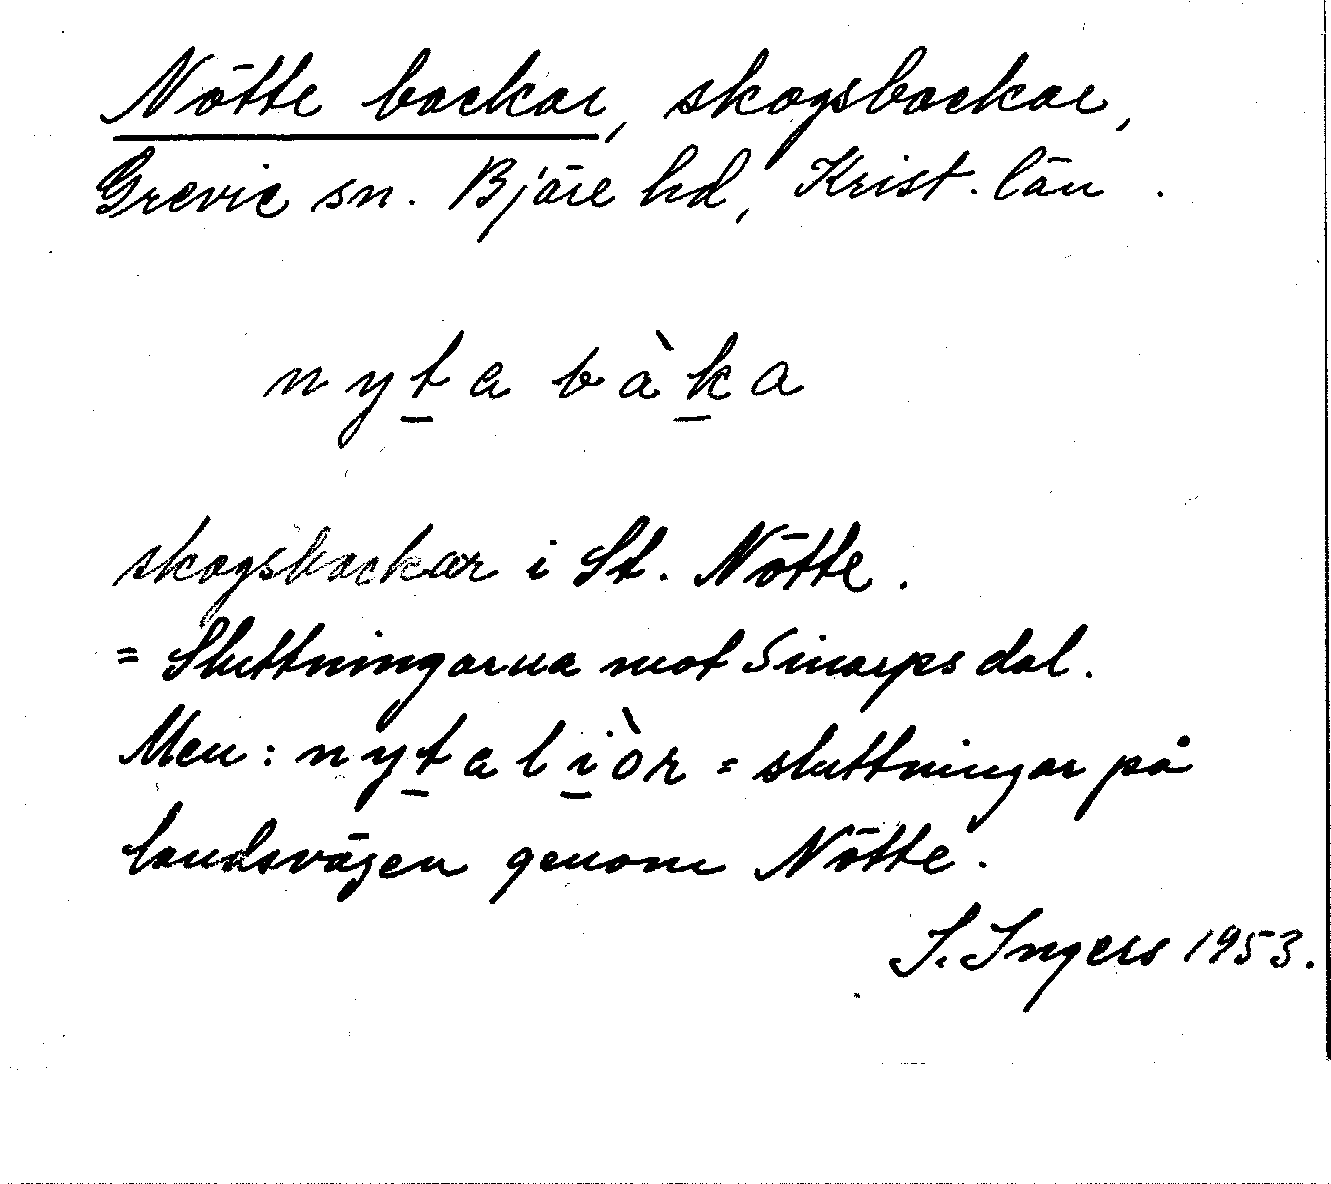 Nötte backar, skogsbackar,
Grevie sn. Bjäre hd, Krist. län.
nyṯa bàḵa
skogsbackar i St. Nötte.
= Sluttningarna mot Sinarps dal.
Men: nyṯa li̱òr = sluttningar på
landsvägen genom Nötte.
I. Ingers 1953.